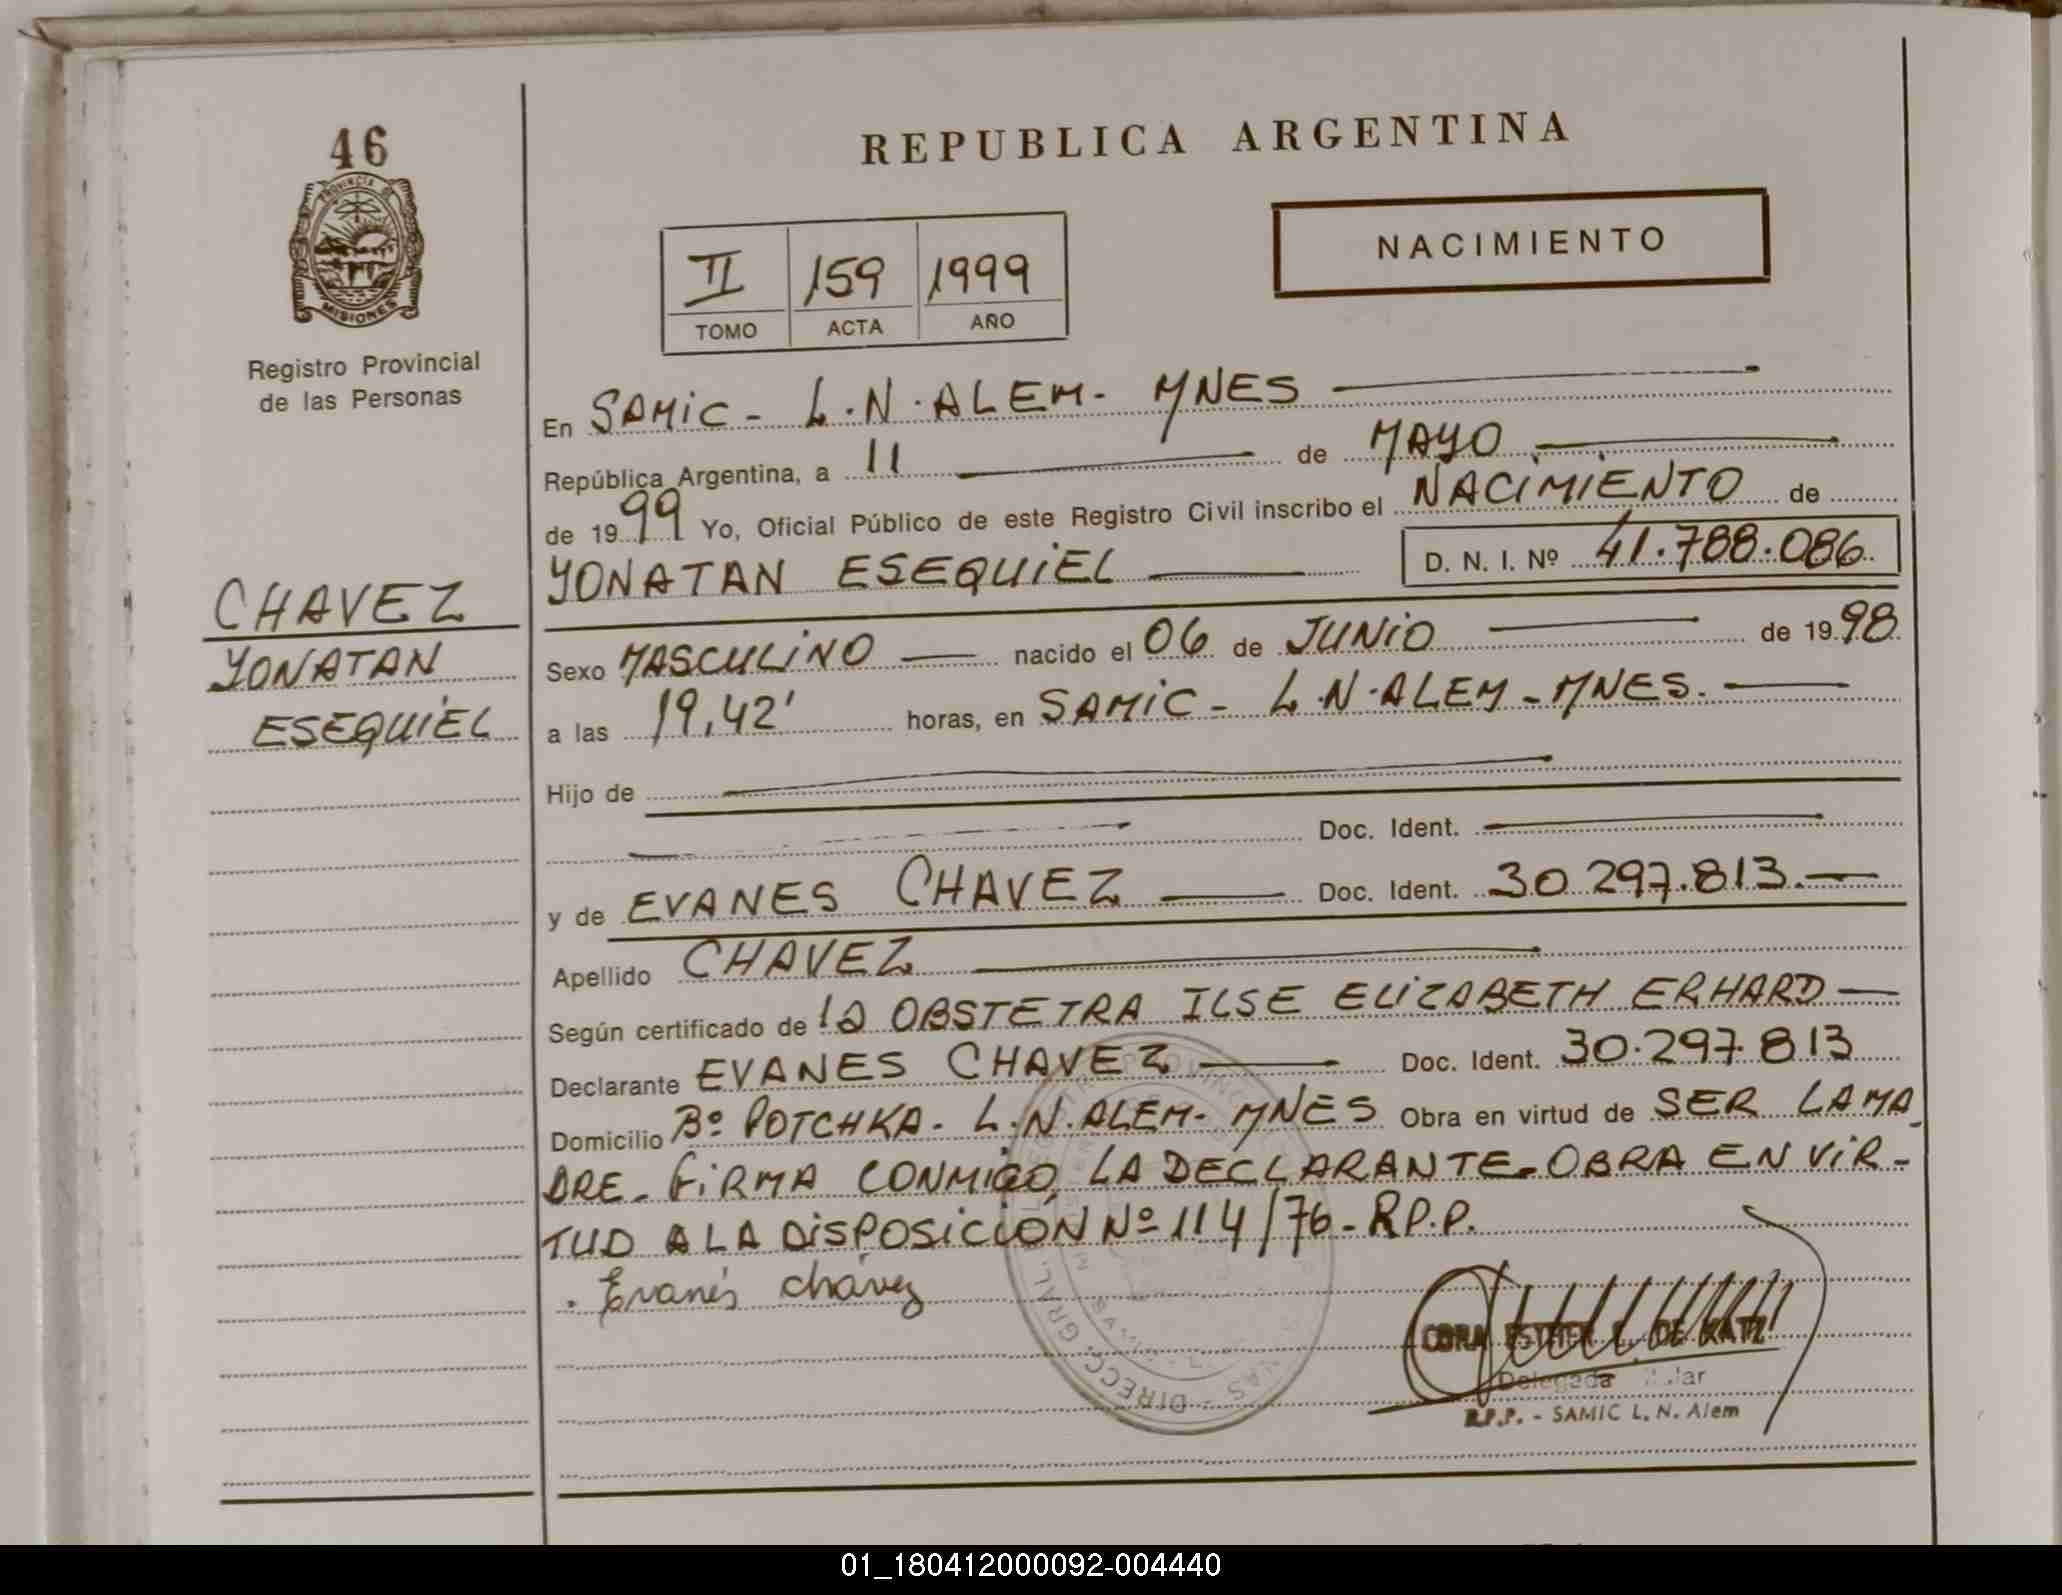 46
PROVINCIA DE
MISIONES
Registro Provincial
de las Personas
CHAVEZ
YONATAN
ESEQUIEL
REPUBLICA ARGENTINA
NACIMIENTO
II 159 1999
TOMO ACTA AÑO
En SAMIC - L.N.ALEM - MNES
República Argentina, a 11 de MAYO
de 1999 Yo, Oficial Público de este Registro Civil inscribo el NACIMIENTO de
YONATAN ESEQUIEL D. N. I. Nº 41.788.086.
Sexo MASCULINO nacido el 06 de JUNIO de 1998
a las 19,42' horas, en SAMIC - L.N.ALEM - MNES.
Hijo de
Doc. Ident.
y de EVANES CHAVEZ Doc. Ident. 30.297.813.
Apellido CHAVEZ
Según certificado de la OBSTETRA ILSE ELIZABETH ERHARD
Declarante EVANES CHAVEZ Doc. Ident. 30.297.813
Domicilio Bº POTCHKA - L.N.ALEM - MNES Obra en virtud de SER LA MA
DRE - FIRMA CONMIGO LA DECLARANTE - OBRA EN VIR-
TUD A LA DISPOSICIÓN Nº 114/76 - R.P.P.
Evanés Chávez
DE KATZ
Delegada
R.P.P. - SAMIC L. N. Alem
01_180412000092-004440